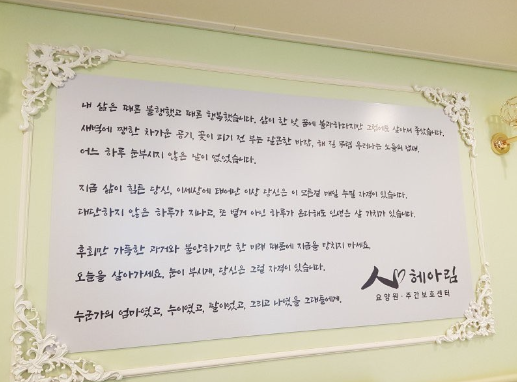 내 삶은 때론 불행했고 때론 행복했습니다. 삶이 한낮 꿈에 불과하다지만 그럼에도 살아서 좋았습니다.
새벽에 쨍한 차가운 공기, 꽃이 피기 전 부는 달큰한 바람, 해 질 무렵 우러나는 노을의 냄새.
어느 하루 눈부시지 않은 날이 없었습니다.
지금 삶이 힘든 당신, 이세상에 태어난 이상 당신은 이 모든걸 매일 누릴 자격이 있습니다.
대단하지 않은 하루가 지나고, 또 별거 아닌 하루가 온다해도 인생은 살 가치가 있습니다.
후회만 가득한 과거와 불안하기만 한 미래 때문에 지금을 망치지 마세요.
오늘을 살아가세요, 눈이 부시게, 당신은 그럴 자격이 있습니다.
누군가의 엄마였고, 누이였고, 딸이였고, 그리고 나였을 그대들에게.
헤아림
요양원·주간보호센터